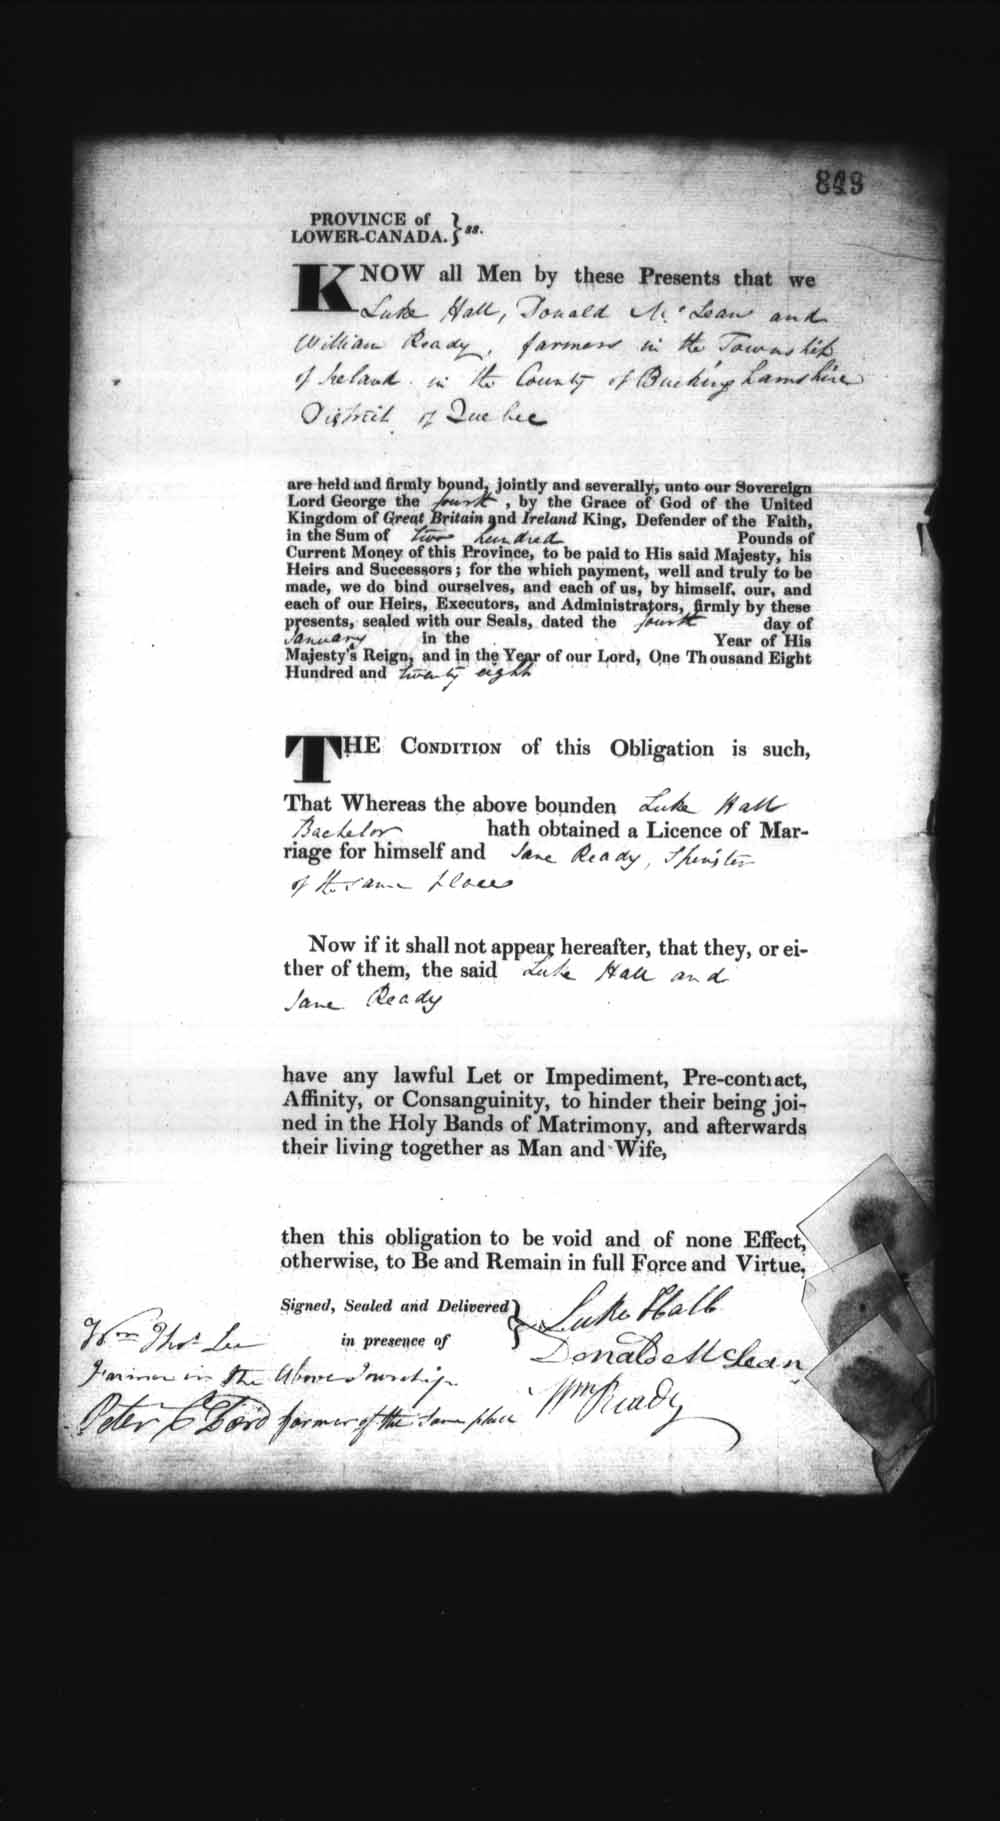 PROVINCE of
LOWER-CANADA. } ss.
KNOW all Men by these Presents that we
Luke Hall, Donald McLean and
William Ready, farmers in the Township
of Ireland in the County of Buckinghamshire
District of Quebec
are held and firmly bound, jointly and severally, unto our Sovereign
Lord George the fourth, by the Grace of God of the United
Kingdom of Great Britain and Ireland King, Defender of the Faith,
in the Sum of two hundred Pounds of
Current Money of this Province, to be paid to His said Majesty, his
Heirs and Successors; for the which payment, well and truly to be
made, we do bind ourselves, and each of us, by himself, our, and
each of our Heirs, Executors, and Administrators, firmly by these
presents, sealed with our Seals, dated the fourth day of
January in the Year of His
Majesty's Reign, and in the Year of our Lord, One Thousand Eight
Hundred and twenty eight
THE CONDITION of this Obligation is such,
That Whereas the above bounden Luke Hall
Bachelor hath obtained a Licence of Mar-
riage for himself and Jane Ready, Spinster
of the same place
Now if it shall not appear hereafter, that they, or ei-
ther of them, the said Luke Hall and
Jane Ready
have any lawful Let or Impediment, Pre-contract,
Affinity, or Consanguinity, to hinder their being joi-
ned in the Holy Bands of Matrimony, and afterwards
their living together as Man and Wife,
then this obligation to be void and of none Effect,
otherwise, to Be and Remain in full Force and Virtue.
Signed, Sealed and Delivered
in presence of
Luke Hall
Donald McLean
Wm Ready
Wm Thos Lee
Farmer in the Above Township
Peter farmer of the same place